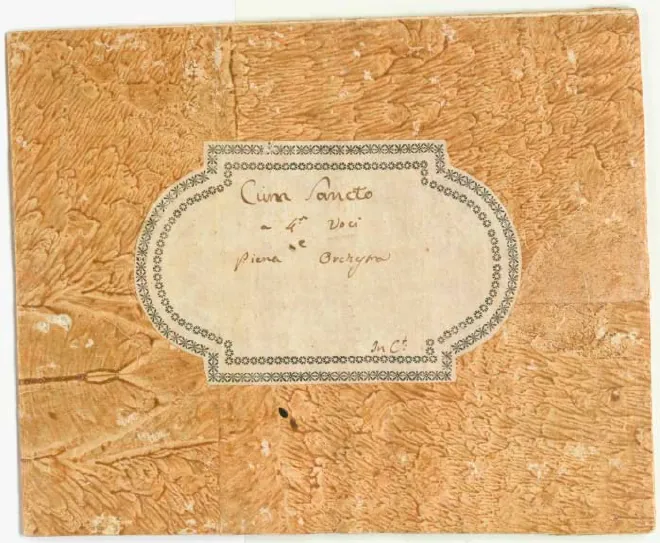 Cum Sancto
a 4.ª Voci
e
piena Orchestra
In C.